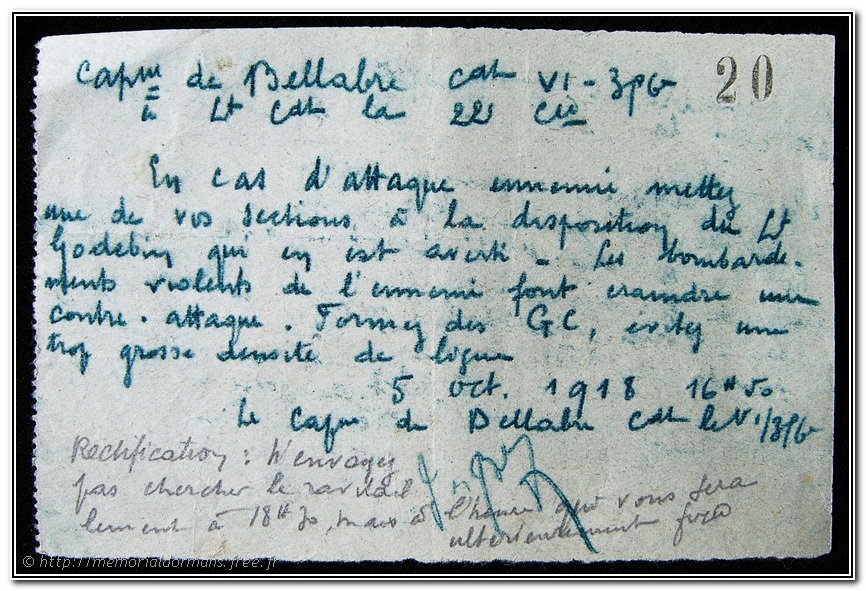 20
Capne de Bellabre cdt VI - 3p6
à Lt Cdt la 22e Cie
En cas d'attaque ennemie mettez
une de vos sections à la disposition du Lt
Godebin qui en est averti - Les bombarde-
ments violents de l'ennemi font craindre une
contre-attaque. Formez des GC, évitez une
trop grosse densité de ligne
5 Oct. 1918 16H50
Le Capne de Bellabre Cdt le VI/3p6
Rectification : N'envoyez
pas chercher le ravitail
lement à 18H30, mais à l'heure qui vous sera
ultérieurement fixée
© http://memorialdormans.free.fr